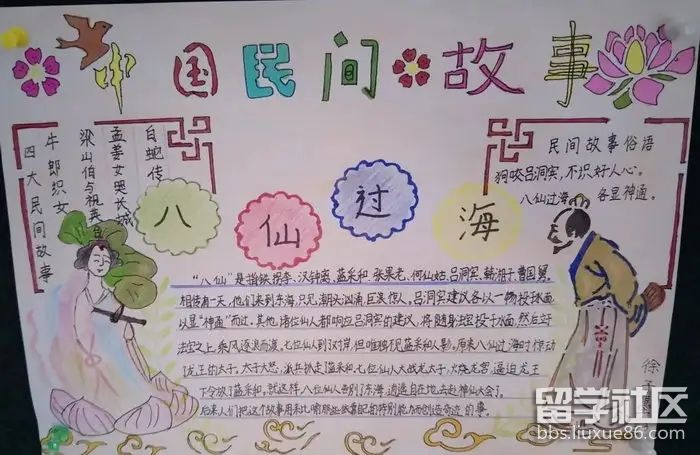 中国民间故事
白蛇传
孟姜女哭长城
梁山伯与祝英台
牛郎织女
四大民间故事
民间故事俗语
狗咬吕洞宾,不识好人心。
八仙过海,各显神通。
八仙过海
"八仙"是指铁拐李、汉钟离、蓝采和、张果老、何仙姑、吕洞宾、韩湘子、曹国舅。
相传有一天,他们来到东海,只见潮头汹涌,巨浪惊人。吕洞宾建议各以一物投于水面,
以显"神通"而过。其他诸位仙人都响应吕洞宾的建议,将随身法宝投于水面,然后立
法宝之上,乘风逐浪而渡。七位仙人到对岸,但唯独不见蓝采和人影。原来八仙过海时惊动
龙王的太子,太子大怒,派兵抓走了蓝采和。七位仙人大战龙太子,火烧龙宫,逼迫龙王
下令放了蓝采和。就这样,八位仙人告别了东海,逍遥自在地去赴神仙大会了。
后来人们把这个故事用来比喻那些依靠自己的特别能力而创造奇迹的事。
徐
留学社区
bbs.liuxue86.com